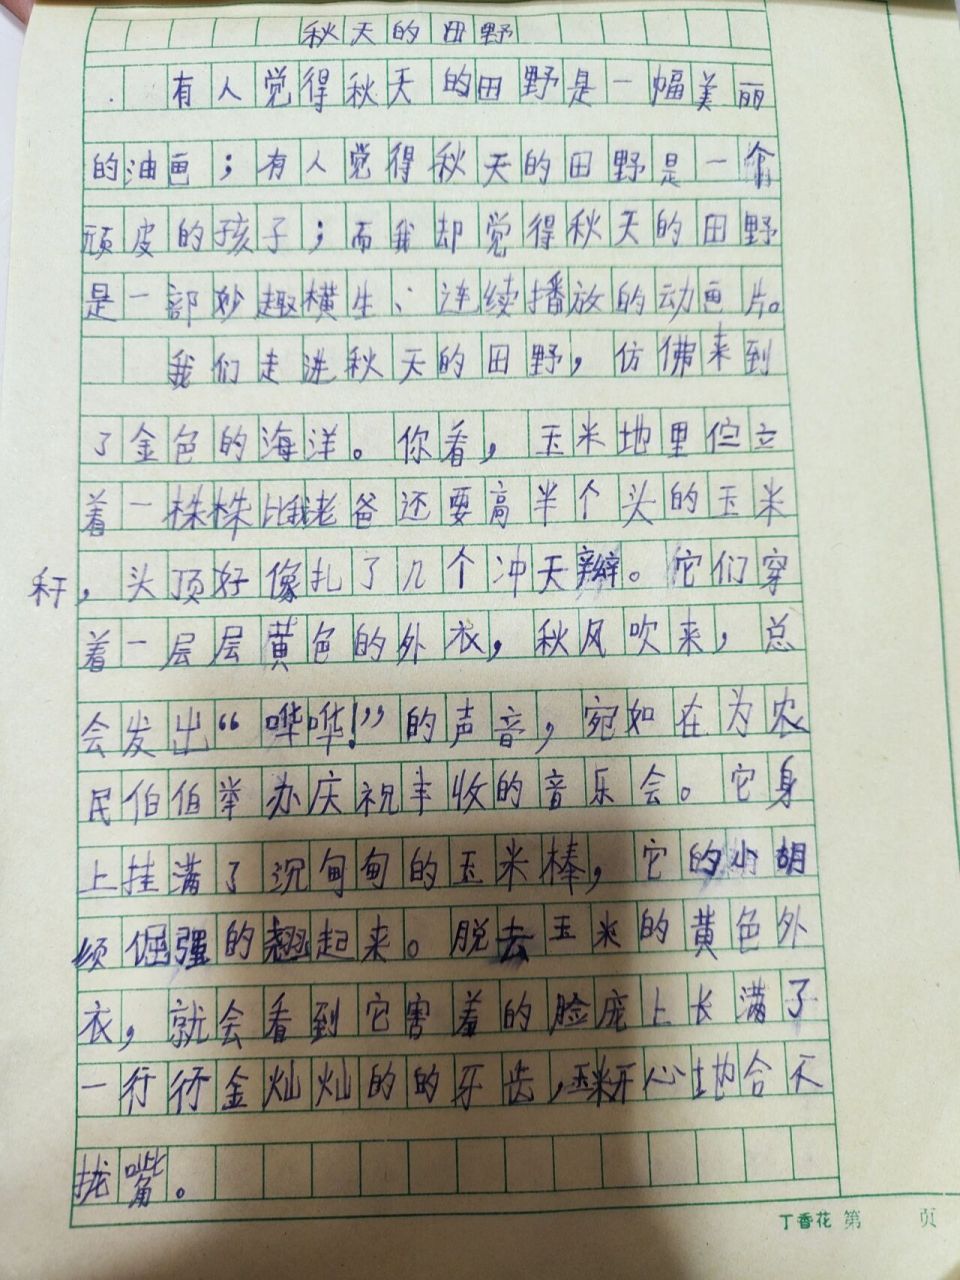 秋天的田野
有人觉得秋天的田野是一幅美丽
的油画；有人觉得秋天的田野是一个
顽皮的孩子；而我却觉得秋天的田野
是一部妙趣横生、连续播放的动画片。
我们走进秋天的田野，仿佛来到
了金色的海洋。你看，玉米地里伫立
着一株株比我老爸还要高半个头的玉米
秆，头顶好像扎了几个冲天辫。它们穿
着一层层黄色的外衣，秋风吹来，总
会发出“哗哗！”的声音，宛如在为农
民伯伯举办庆祝丰收的音乐会。它身
上挂满了沉甸甸的玉米棒，它的小胡
须倔强的翘起来。脱去玉米的黄色外
衣，就会看到它害羞的脸庞上长满了
一行行金灿灿的的牙齿，玉米开心地合不
拢嘴。
丁香花 第 页